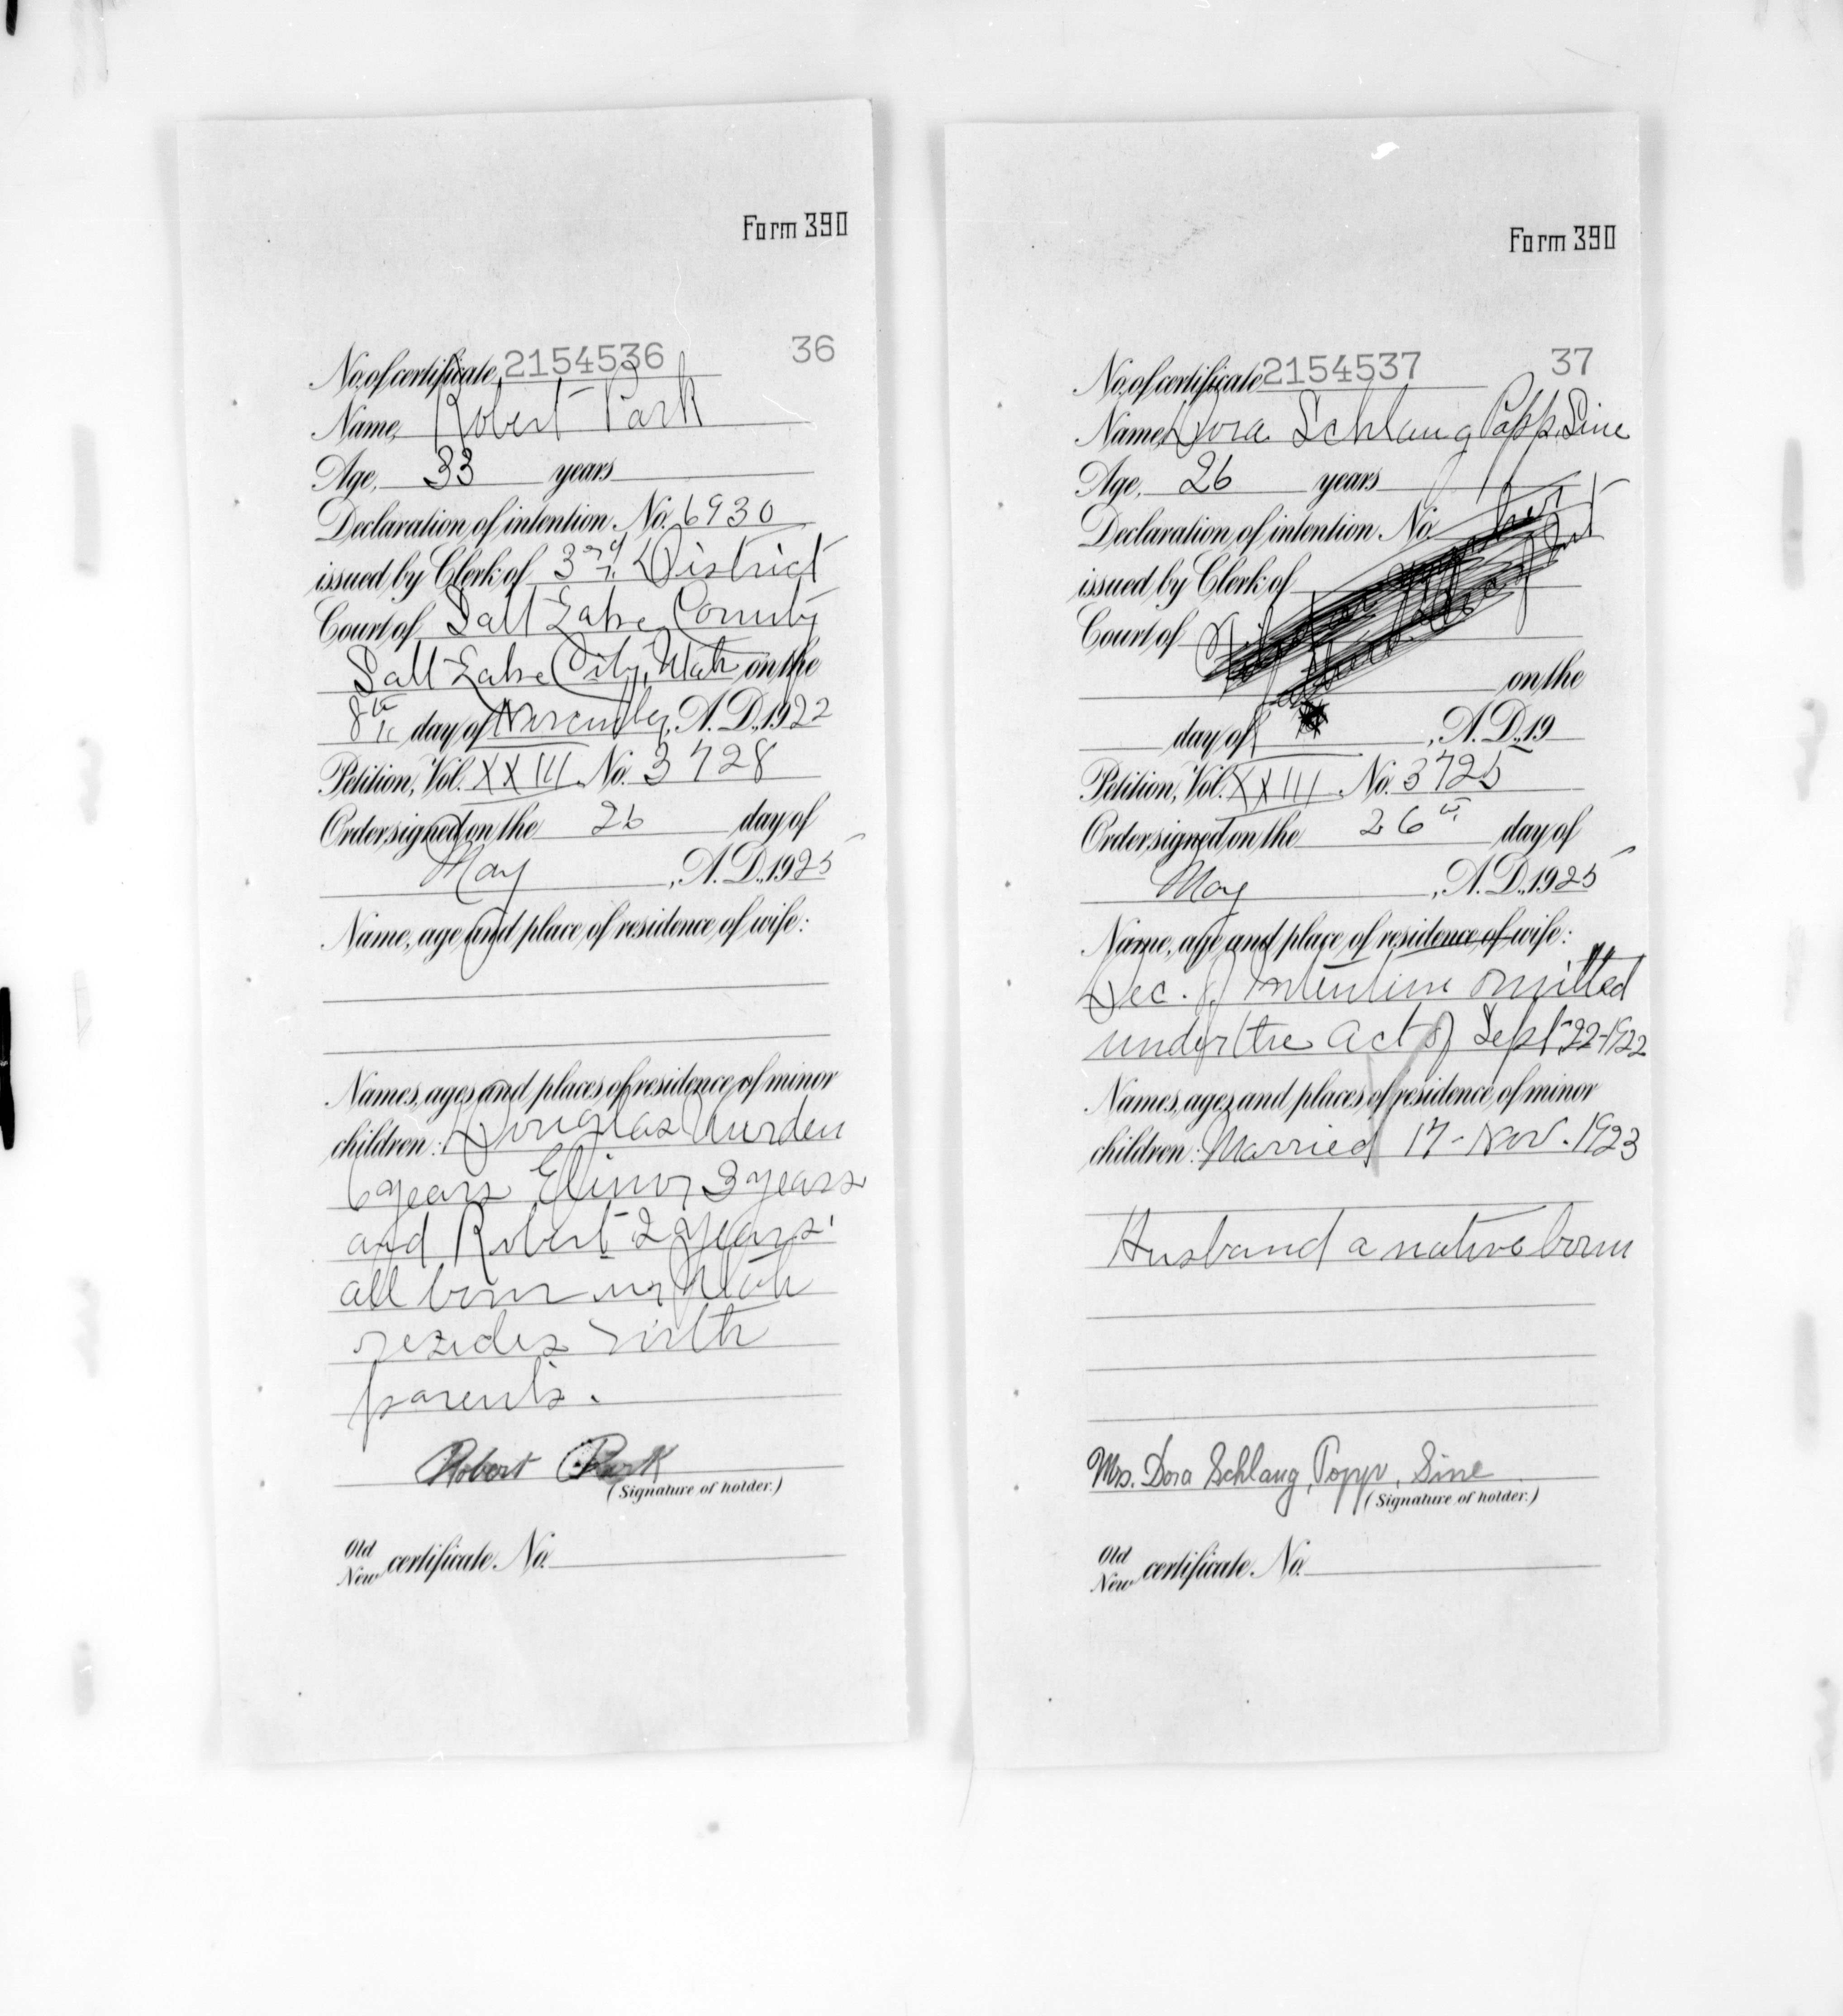 Form 390
No. of certificate, 2154536 36
Name, Robert Park
Age, 33 years
Declaration of intention, No. 6930
issued by Clerk of 3rd District
Court of Salt Lake County
Salt Lake City, Utah on the
8th day of November, A. D., 1922
Petition, Vol. XXIII No. 3728
Order signed on the 26 day of
May, A. D., 1925
Name, age and place of residence of wife:
Names, ages and places of residence of minor
children: Douglas
6 years Elinor 3 years
and Robert 2 years
all born in Utah
resides with
parents.
Robert Park
(Signature of holder.)
Old
New certificate No.
Form 390
No. of certificate 2154537 37
Name, Dora Schlaug Popp, Sine
Age, 26 years
Declaration of intention, No.
issued by Clerk of
Court of
on the
day of , A. D., 19
Petition, Vol. XXIII No. 3725
Order signed on the 26th day of
May, A. D., 1925
Name, age and place of residence of wife:
Dec. of Intention omitted
under the act of Sept 22-1922
Names, ages and places of residence of minor
children: Married 17 - Nov. 1923
Husband a native born
Mrs. Dora Schlaug, Popp, Sine
(Signature of holder.)
Old
New certificate No.